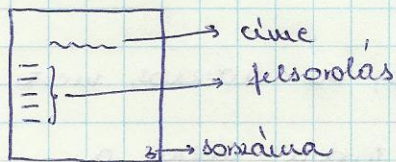 címe
felsorolás
3 → sorszáma